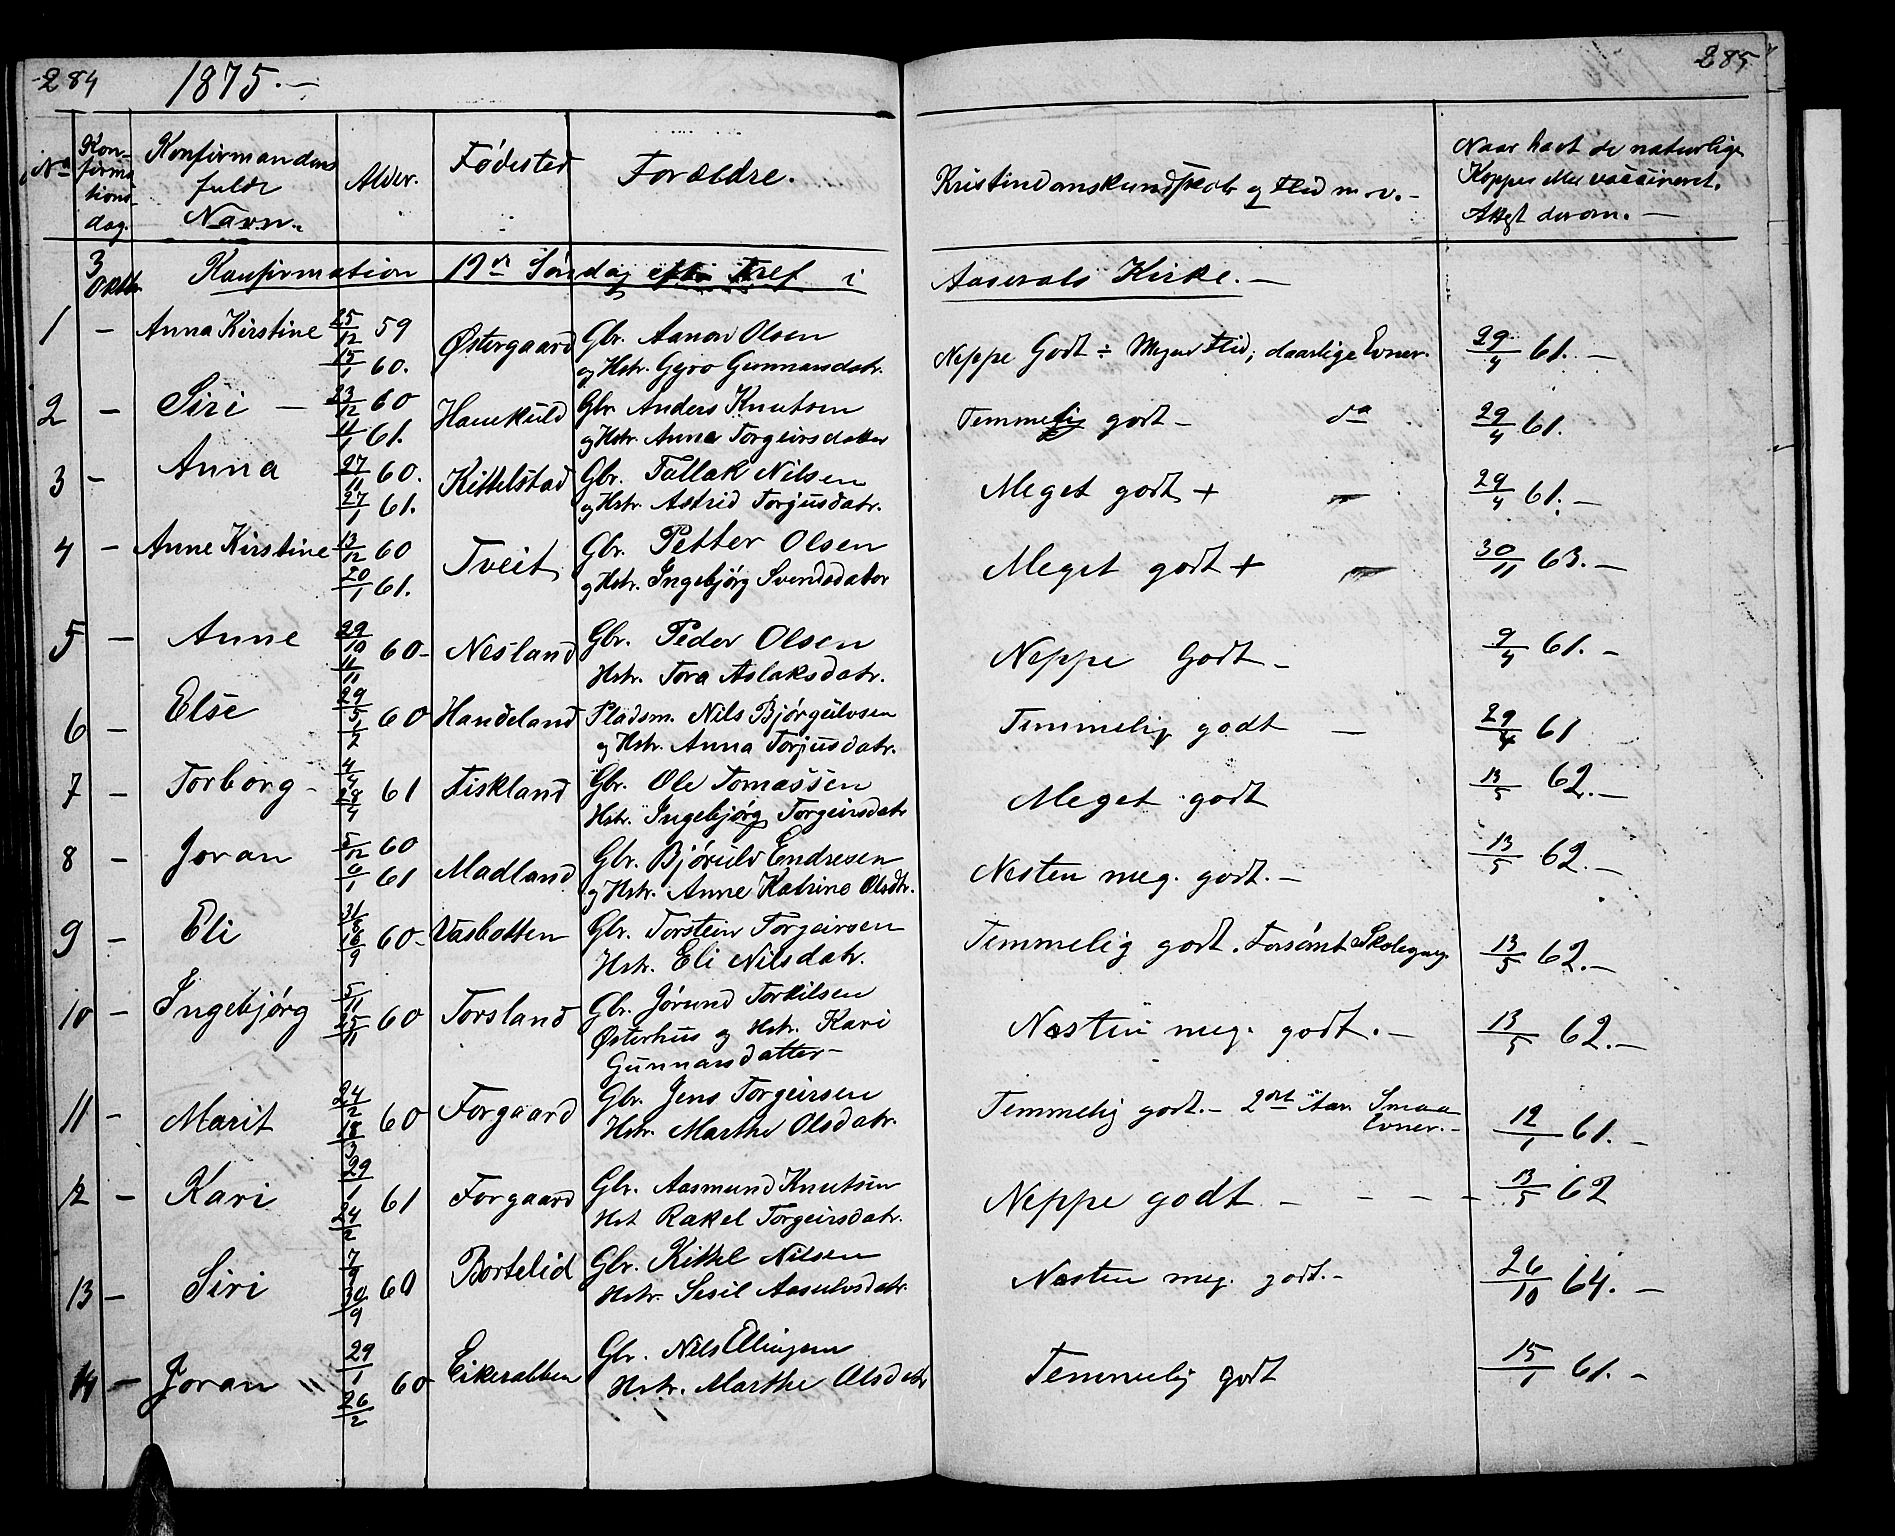 284 1875.— 285
No Kon-firma-tions-dag. Konfirmandens fulde Navn. Alder. Fødested Forældre. Kristendomskundskab og Flid m.v.- Naar havt de naturlige Kopper eller vaccineret. Attest derom.—
3 Oktbr. Konfirmation 19de Søndag efter Tref i Aaserals Kirke.—
1 - Anna Kirstine 25/12 59 Østergaard Gbr. Aanon Olsen
15/1 60. og Hstr. Gyro Gunnarsdatr. Neppe Godt ÷ Megen Flid; daarlige Evner. 29/4 61.—
2 - Siri — 23/12 60 Gbr. Anders Knutsen
11/1 61. og Hstr. Anna Torgeirsdatter Temmelig godt - do 29/4 61.
3 - Anna 27/11 60. Kittelstad Gbr. Tallak Nilsen
27/1 61. og Hstr. Astrid Torjusdatr. Meget godt + 29/4 61.—
4 - Anne Kirstine 13/12 60 Tveit Gbr. Petter Olsen
20/1 61. og Hstr. Ingebjørg Svendsdator Meget godt + 30/11 63.—
5 - Anne 29/10 60- Nesland Gbr. Peder Olsen
11/11 Hstr. Tora Aslaksdatr. Neppe Godt - 9/4 61.-
6 - Else 29/5 60 Handeland Pladsm. Nils Bjørgulvsen
og Hstr. Anna Torjusdatr. Temmelig godt — 29/4 61
7 - Torborg - 4/4 61 Fiskland Gbr. Ole Tomassen
Hstr. Ingebjørg Torgeirsdatr Meget godt 13/5 62.—
8 - Joran 5/12 60 Madland Gbr. Bjørulv Endresen
6/1 61 og Hstr. Anne Katrine Olsdtr. Nesten meg. godt.— 13/5 62.—
9 - Eli 60- Vasbotten Gbr. Torstein Torgeirsen
16/9 Hstr. Eli Nilsdatr. Temmelig godt. Forsømt Skolegang. 13/5 62.—
10 - Ingebjørg 5/11 60 Torsland Gbr. Jørund Torkilsen
Østerhus og Hstr. Kari
Gunnarsdatter- Nesten meg. godt.— 13/5 62.—
11 - Marit 24/2 60 Forgaard Gbr. Jens Torgeirsen
18/3 Hstr. Marthe Olsdatr. Temmelig godt.- 2det Aar. Smaa Evner.- 12/1 61.-
12 - Kari 29/1 61 Forgaard Gbr. Aasmund Knutsen
24/2 Hst Rakel Torgeirsdatr. Neppe godt - - - - 13/5 62
13 - Siri 7/9 60 Bortelid Gbr. Kittel Nilsen
30/9 Hstr. Sesil Aasulvsdatr. Nesten meg. godt.- 26/10 64.—
14 - Joran " 29/1 60 Gbr. Nils Ellingsen
26/2 Hstr. Marthe Olsdatr Temmelig godt 15/1 61.-